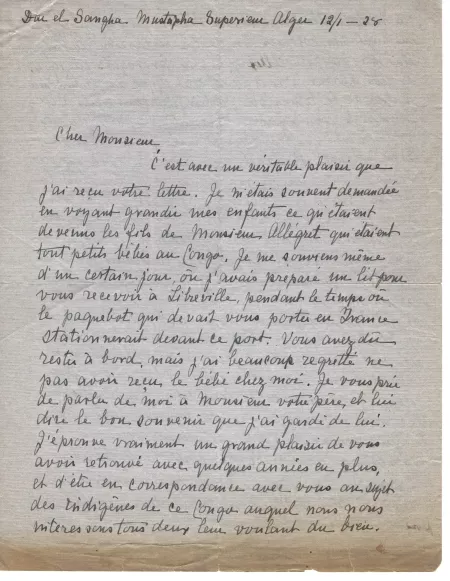 Dar el Sangha Mustapha Superieur Alger 12/1 - 28
Cher Monsieur
C'est avec un véritable plaisir que
j'ai reçu votre lettre. Je m'étais souvent demandée
en voyant grandir mes enfants ce qu'étaient
devenus les fils de Monsieur Allégret qui étaient
tout petits bébés au Congo. Je me souviens même
d'un certain jour, où j'avais préparé un lit pour
vous recevoir à Libreville, pendant le temps où
le paquebot qui devait vous porter en France
stationnerait devant ce port. Vous avez dû
rester à bord, mais j'ai beaucoup regretté ne
pas avoir reçu le bébé chez moi. Je vous prie
de parler de moi à Monsieur votre père, et lui
dire le bon souvenir que j'ai gardé de lui.
J'éprouve vraiment un grand plaisir de vous
avoir retrouvé avec quelques années en plus,
et d'être en correspondance avec vous au sujet
des Indigènes de ce Congo auquel nous nous
intéressons tous deux leur voulant du bien.